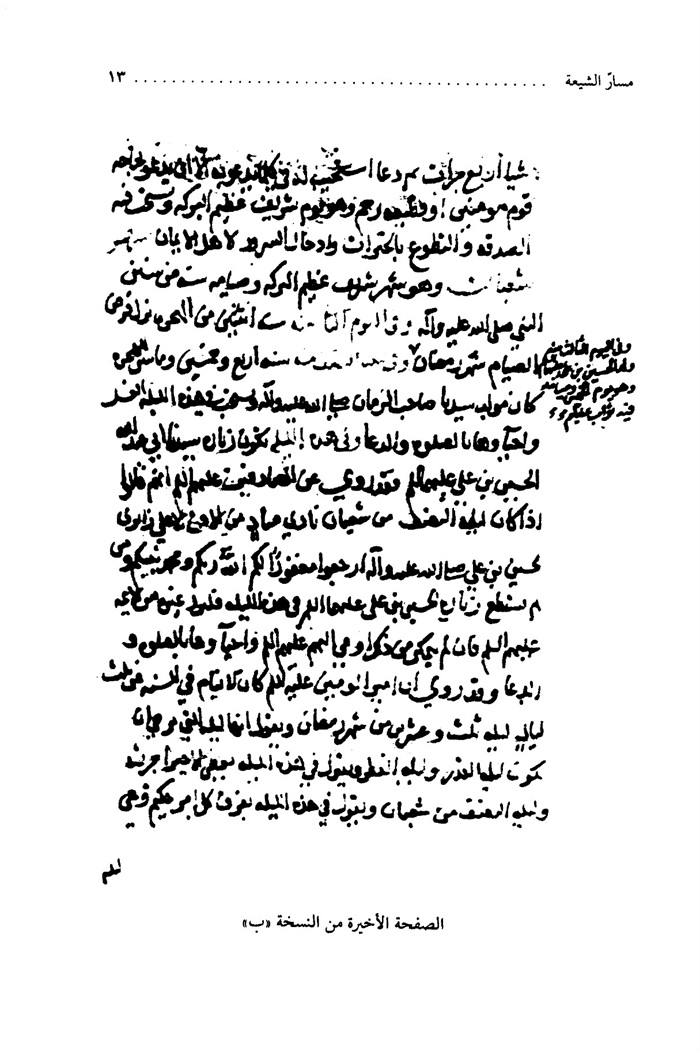 مسارّ الشيعة ........................................ ١٣
شيا أربع مرات ثم دعا استجيب له في كلما يدعو به إلا أن يدعو لجاحة
قوم مومنين أو قطيعة رحم وهو يوم شريف عظيم البركه ويستحب فيه
الصدقه والتطوع بالخيرات وادخال السرور لاهل الايمان شهر
شعبان وهو شهر شريف عظيم البركه وصيامه سنه من سنن
النبي صلى الله عليه وآله وفي اليوم سنه اثنين من الهجره نزل فرض
الصيام شهر رمضان وفي سنه اربع وخمسين وماتين من الهجره
كان مولد سيدنا صاحب الزمان صلى الله عليه وآله ويستحب في هذه الليله الغسل
واحياوها بالصلوه والدعا وفي هذه الليله تكون زياره سيدنا ابي عبد الله
الحسين بن علي عليهما السلم وقد روي عن الصادقين عليهم السلم انهم قالوا
اذا كان ليلة النصف من شعبان نادى مناد من الافق الاعلى زايرى
الحسين بن علي صلى الله عليه وآله ارجعوا مغفورا لكم الله ربكم ومحمد نبيكم ومن
لم يستطع زيارة الحسين بن علي عليهما السلم في هذه الليله فليزر غيره من الايمه
عليهم السلم فان لم يتمكن من ذلك اومى اليهم عليهم السلم واحياوها بالصلوه و
الدعا وقد روي ان امير المومنين عليه السلم كان لا ينام في السنه ثلث
ليالي ليله ثلث وعشرين من شهر رمضان ويقول انها ليله التي يرجى ان
يكون ليلة القدر وليله الفطر ويقول في هذه الليله يعطى الاجير اجرته
وليله النصف من شعبان ويقول في هذه الليله يفرق كل امر حكيم وهي
وفي اليوم الثالث منه
ولد الحسين بن علي عليهما السلم
الصفحة الأخيرة من النسخة «ب»